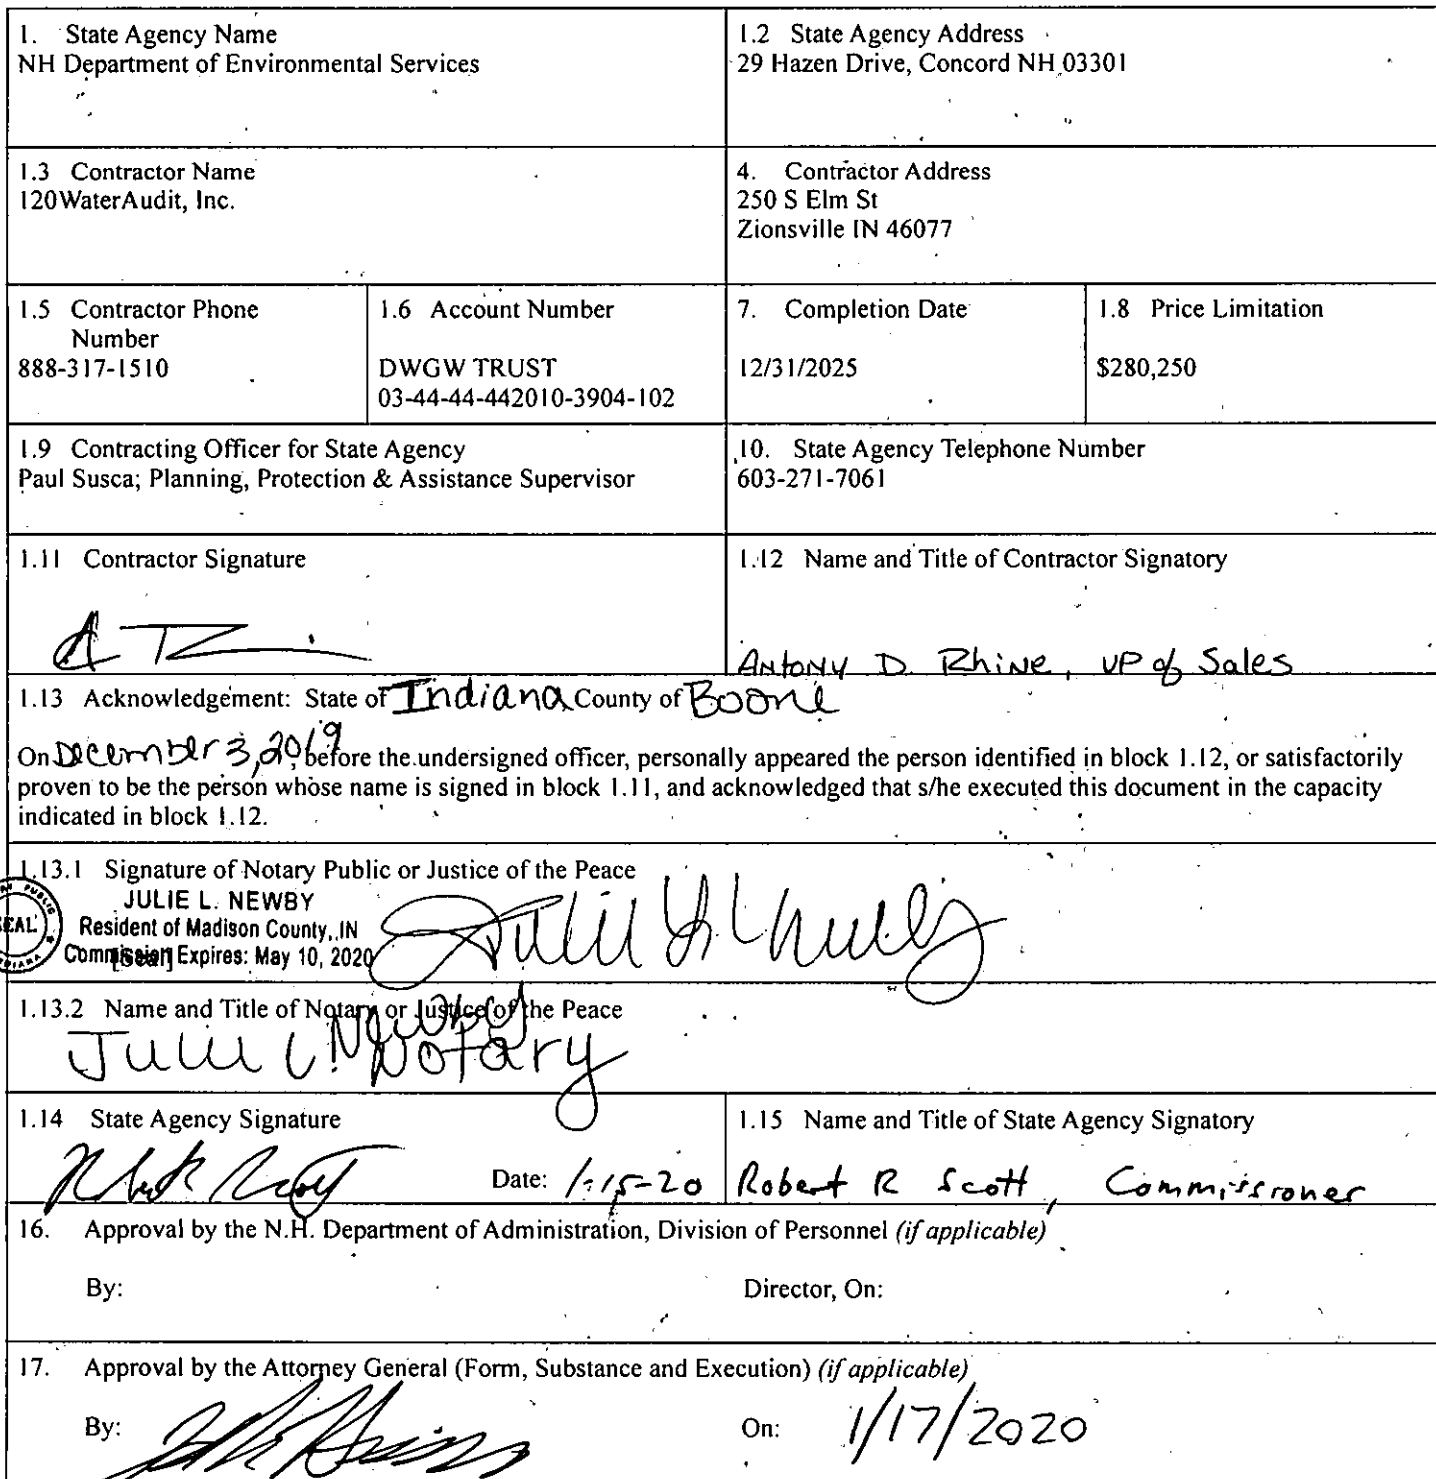 1. State Agency Name
NH Department of Environmental Services
1.2 State Agency Address
29 Hazen Drive, Concord NH 03301
1.3 Contractor Name
120WaterAudit, Inc.
4. Contractor Address
250 S Elm St
Zionsville IN 46077
1.5 Contractor Phone
Number
888-317-1510
1.6 Account Number
DWGW TRUST
03-44-44-442010-3904-102
7. Completion Date
12/31/2025
1.8 Price Limitation
$280,250
1.9 Contracting Officer for State Agency
Paul Susca; Planning, Protection & Assistance Supervisor
10. State Agency Telephone Number
603-271-7061
1.11 Contractor Signature
1.12 Name and Title of Contractor Signatory
Antony D. Rhine, VP of Sales
1.13 Acknowledgement: State of Indiana County of Boone
On December 3, 2019, before the undersigned officer, personally appeared the person identified in block 1.12, or satisfactorily
proven to be the person whose name is signed in block 1.11, and acknowledged that s/he executed this document in the capacity
indicated in block 1.12.
1.13.1 Signature of Notary Public or Justice of the Peace
JULIE L. NEWBY
SEAL
Resident of Madison County, IN
Commission Expires: May 10, 2020
[Seal]
Julie L Newby
1.13.2 Name and Title of Notary or Justice of the Peace
Julie L. Newby
Notary
1.14 State Agency Signature
Date: 1-15-20
1.15 Name and Title of State Agency Signatory
Robert R Scott, Commissioner
16. Approval by the N.H. Department of Administration, Division of Personnel (if applicable)
By:
Director, On:
17. Approval by the Attorney General (Form, Substance and Execution) (if applicable)
By:
On: 1/17/2020